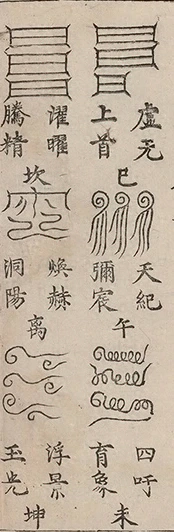 虛无
上首
巳
天紀
彌宸
午
四吁
育象
未
濯曜
騰精
坎
煥赫
洞陽
离
浮景
玉光
坤